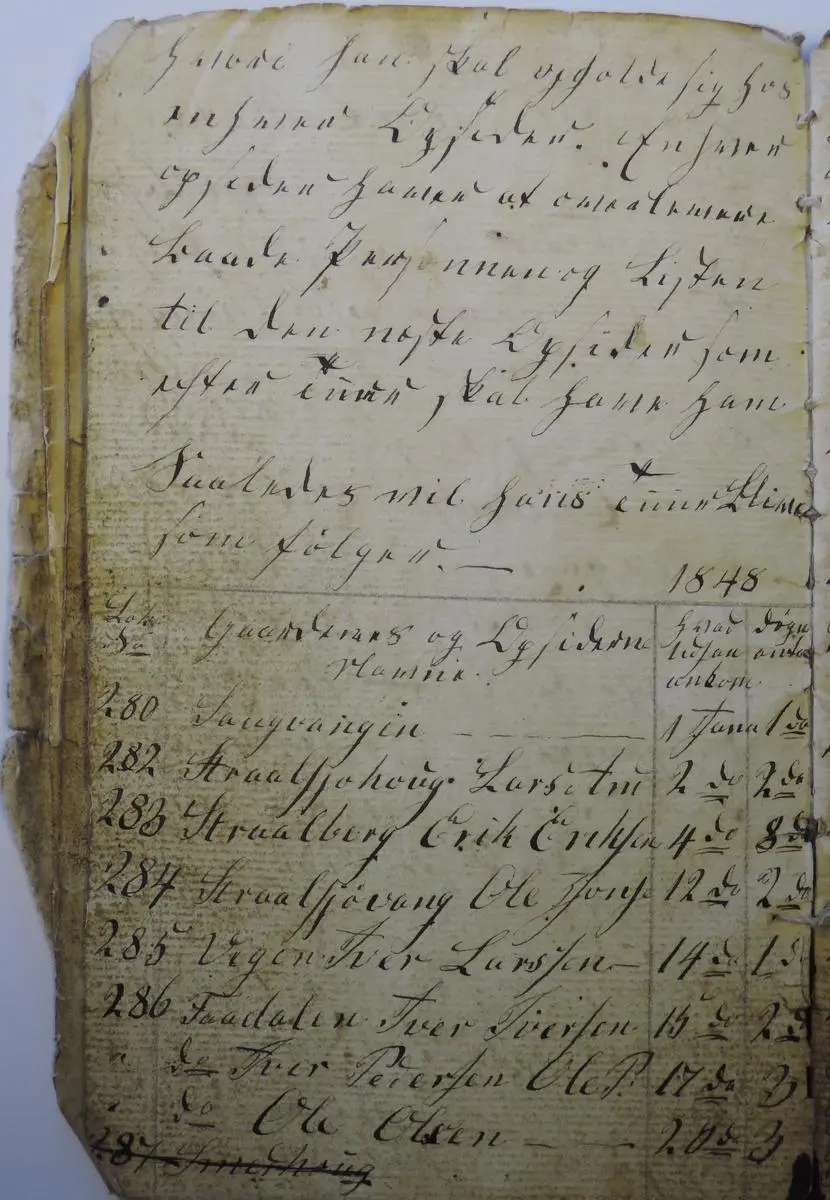 hvori han skal opholde sig hos
enhver Opsider. Enhver
opsider haver at overlevere
baade Personnen og Listen
til den næste Opsider som
efter Tuur skal have ham
Saaledes vil hans Tuur blive
som følger. —
1848
Løb No Gaardernes og Opsidernes Navne Hvad tiden ankom Døgn
280 Sangvangin — 1 Janu 1 do
282 Straalsjohoug Lars Am 2 do 2 do
283 Straalberg Erik Eriksen 4 do 8 do
284 Straalsjøvang Ole Jons 12 do 2 do
285 Vegen Iver Larssen — 14 do 1 do
286 Faadalen Iver Iversen 15 do 2 d
" do Iver Pedersen Ole P. 17 do 3
" do Ole Olsen — 20 do 3
287 Smedhoug